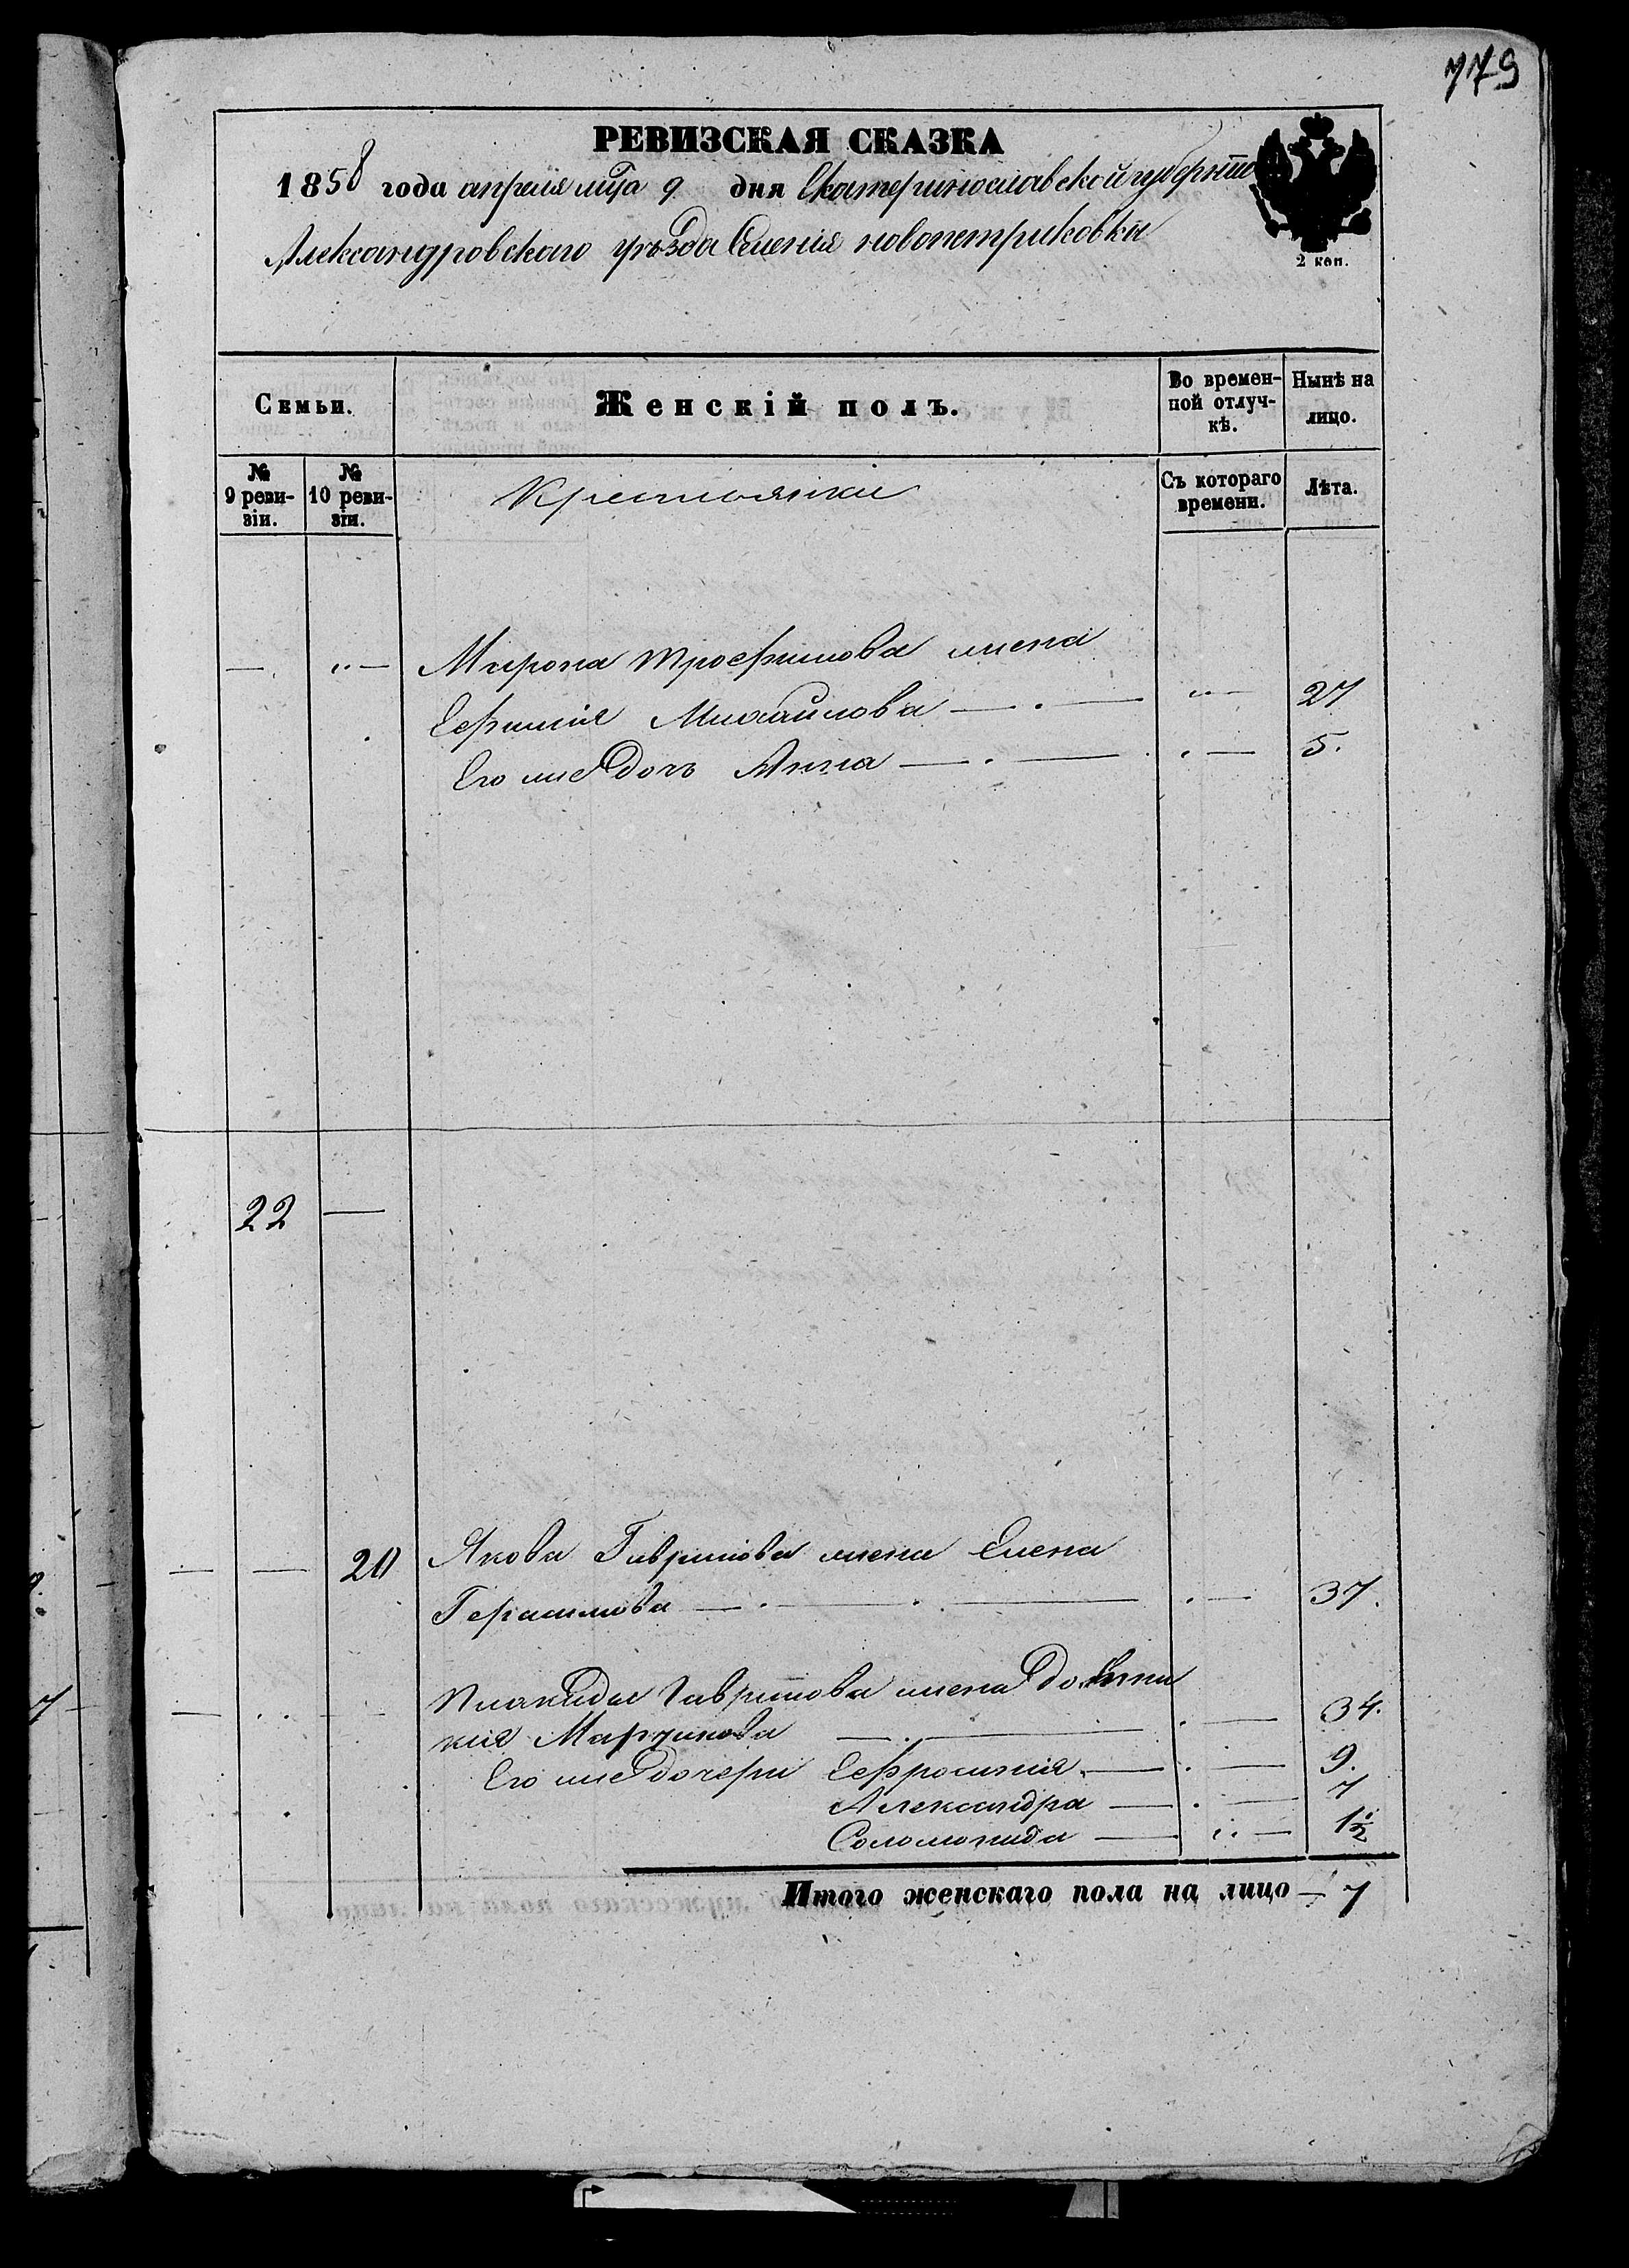 779
РЕВИЗСКАЯ СКАЗКА
1858 года апреля мца 9 дня Екатеринославской губернiи
Александровскаго уѣзда Селенiя новопетриковки
2 коп.
Семьи.
Женскiй полъ.
Во времен-
ной отлуч-
кѣ.
Нынѣ на
лицо.
№
9 реви-
зiи.
№
10 реви-
зiи.
Крестьянки
Съ котораго
времени.
Лѣта.
— „— Мирона трофимова жена
Ефимiя Михайлова — . — „— 27
Его же дочь Анна — . — . — 5.
22 —
— — 20 Якова Гаврилова жена Елена
Герасимова — . — . — . — 37.
Плакиды Гаврилова жена
кiя — . — 34.
Его же дочери Ефросинiя — . — 9.
Александра — . — 7
Соломонида — „— 1½
Итого женскаго пола на лицо — 7